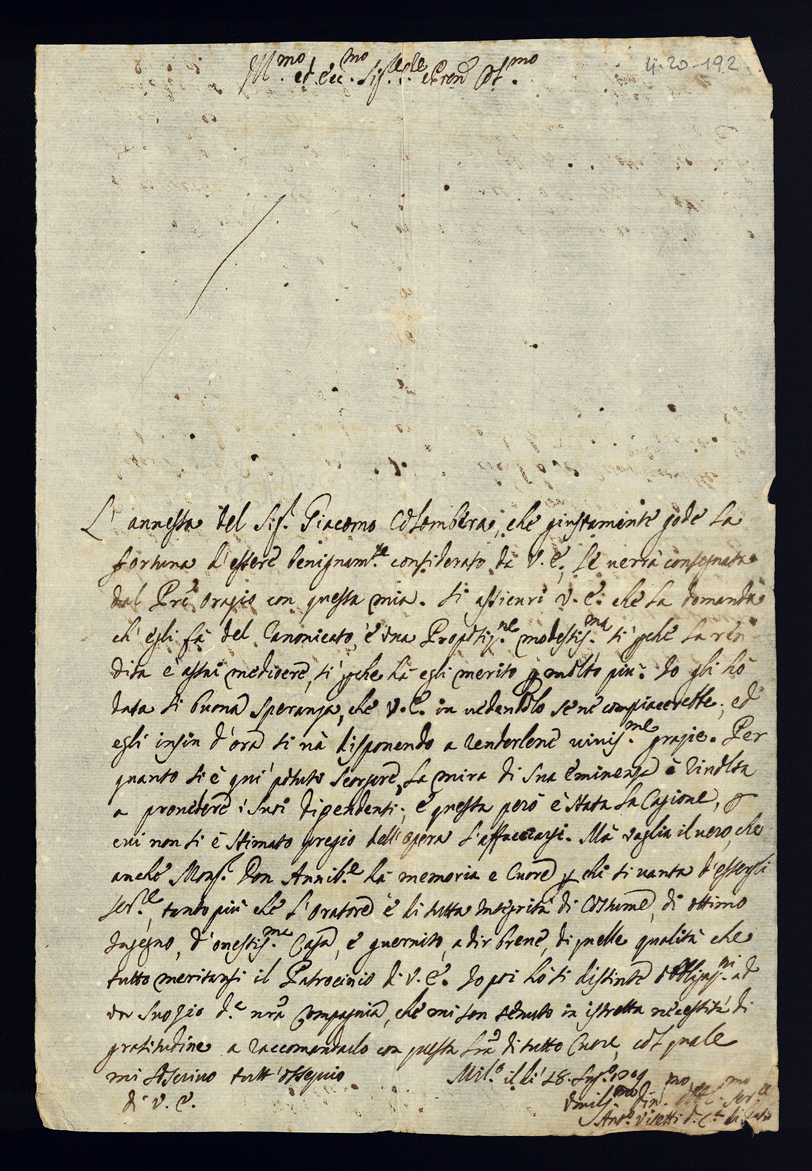 Ill.mo et ecc.mo Sig.re
4-20-192
L'annessa del Sig.r Giacomo Colombera, che giustamente gode la
fortuna d'essere benignam.te considerato da V. E., le uerrà consegnata
dal Pre Orazio con questa mia. Si assicuri V. E. che la domanda
ch'egli fà del Canonicato, è vna Propositi.ne modestiss.ma sì pche la ren
dita è assai mediocre, sì pche hà egli merito p molto più. Io gli hò
data sì buona speranza, che V. E. in uedendolo se ne compiacerebbe, ed
egli insin d'ora si uà disponendo a renderlene uiuiss.me grazie. Per
quanto si è qui potuto scorgere, la mira di Sua Eminenza è riuolta
a prouedere i suoi dipendenti; e questa però è stata la cagione, p
cui non si è stimato pregio dell'opera l'affacciarsi. Mà vaglia il uero, che
anche Mons.r Don Annib.le hà memoria e cuore p chi si uanta d'essergli
ser.re, tanto più che l'Oratore è di tutta integrità di costume, di ottimo
ingegno, d'onestiss.ma Casa, e guernito, a dir breue, di quelle qualità che
tutto meritansi il Patrocinio di V. E. Io poi hò sì distinte obbligaz.ni ad
vn suo zio d.a nra Compagnia, che mi son ueduto in istretta necessità di
gratitudine a raccomandarlo con questa di tutto cuore, col quale
mi ascriuo tutt'ossequio
Mil.o il dì 28
di V. E.
Vmiliss.mo diu.mo Ser.re
Ant.o Visetti d. C. di Giesù